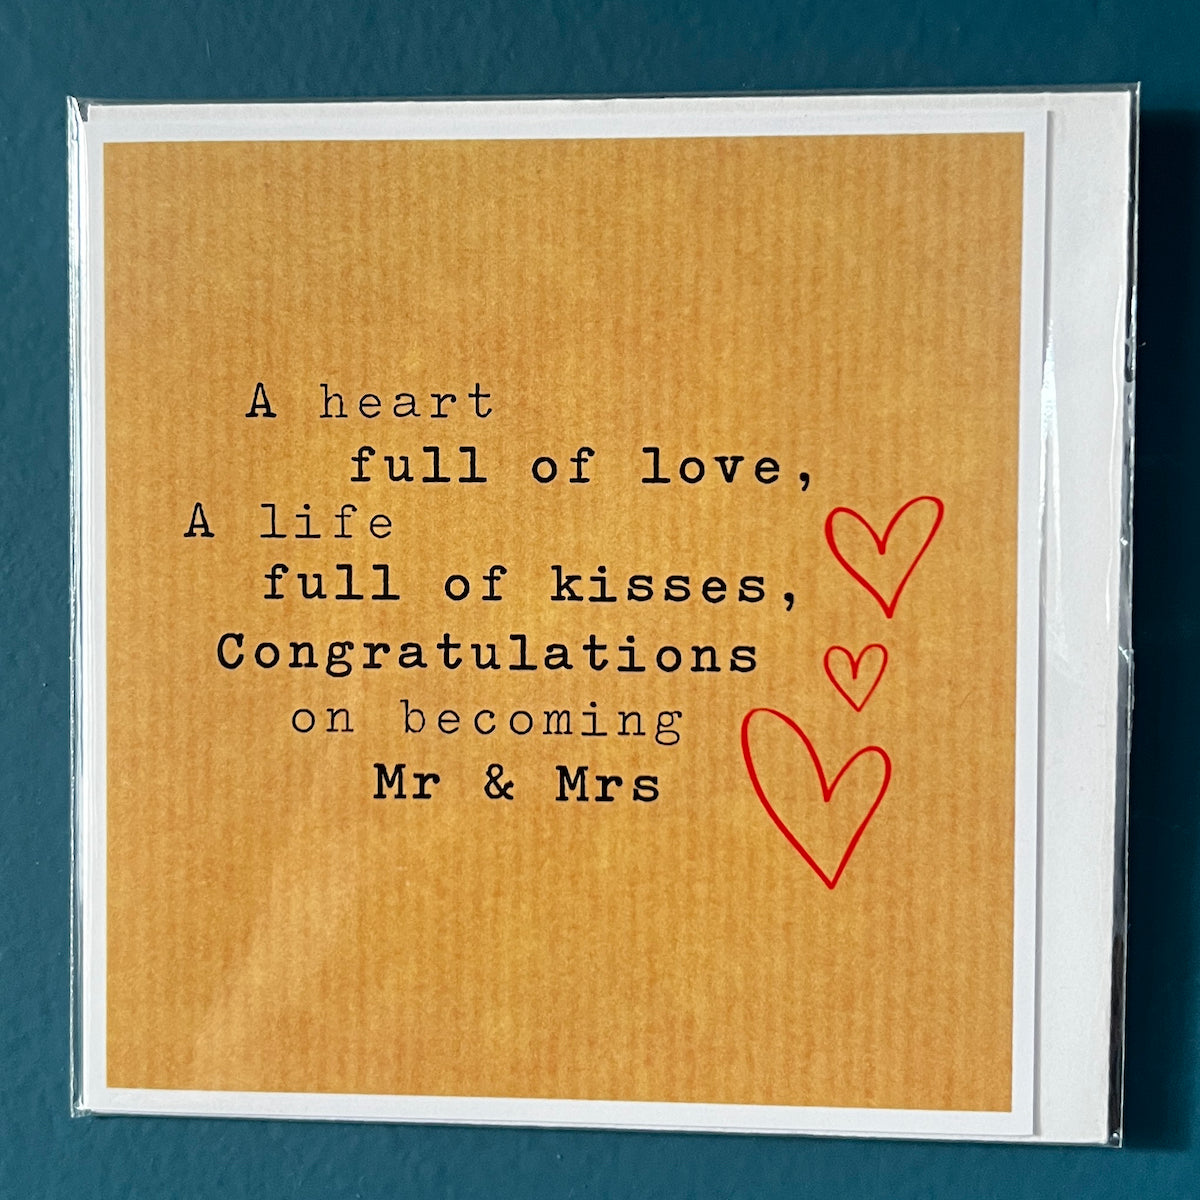 A heart
full of love,
A life
full of kisses,
Congratulations
on becoming
Mr & Mrs